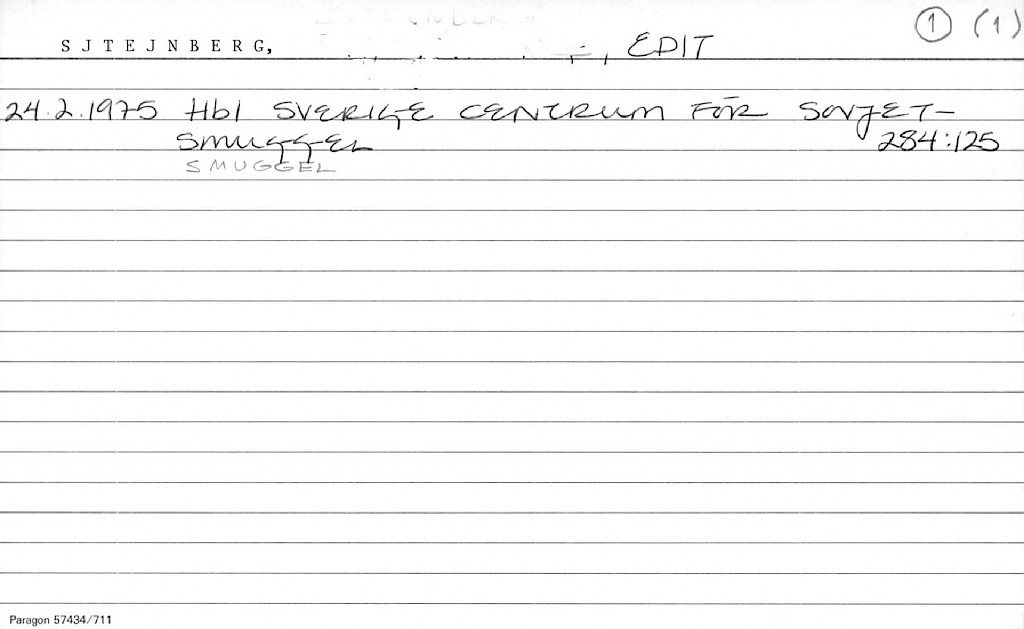 SJTEJNBERG, EDIT ① (1)
24.2.1975 Hbl SVERIGE CENTRUM FÖR SOVJET-
SMUGGEL 284:125
SMUGGEL
Paragon 57434/711